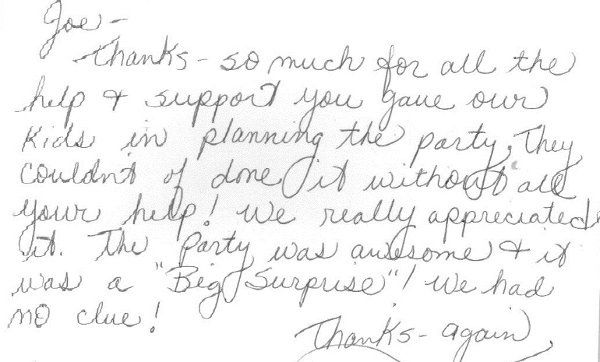 Joe -
Thanks - so much for all the
help & support you gave our
kids in planning the party, They
couldn't of done it without all
your help! We really appreciated
it. The party was awesome & it
was a "Big Surprise"! We had
no clue!
Thanks - again